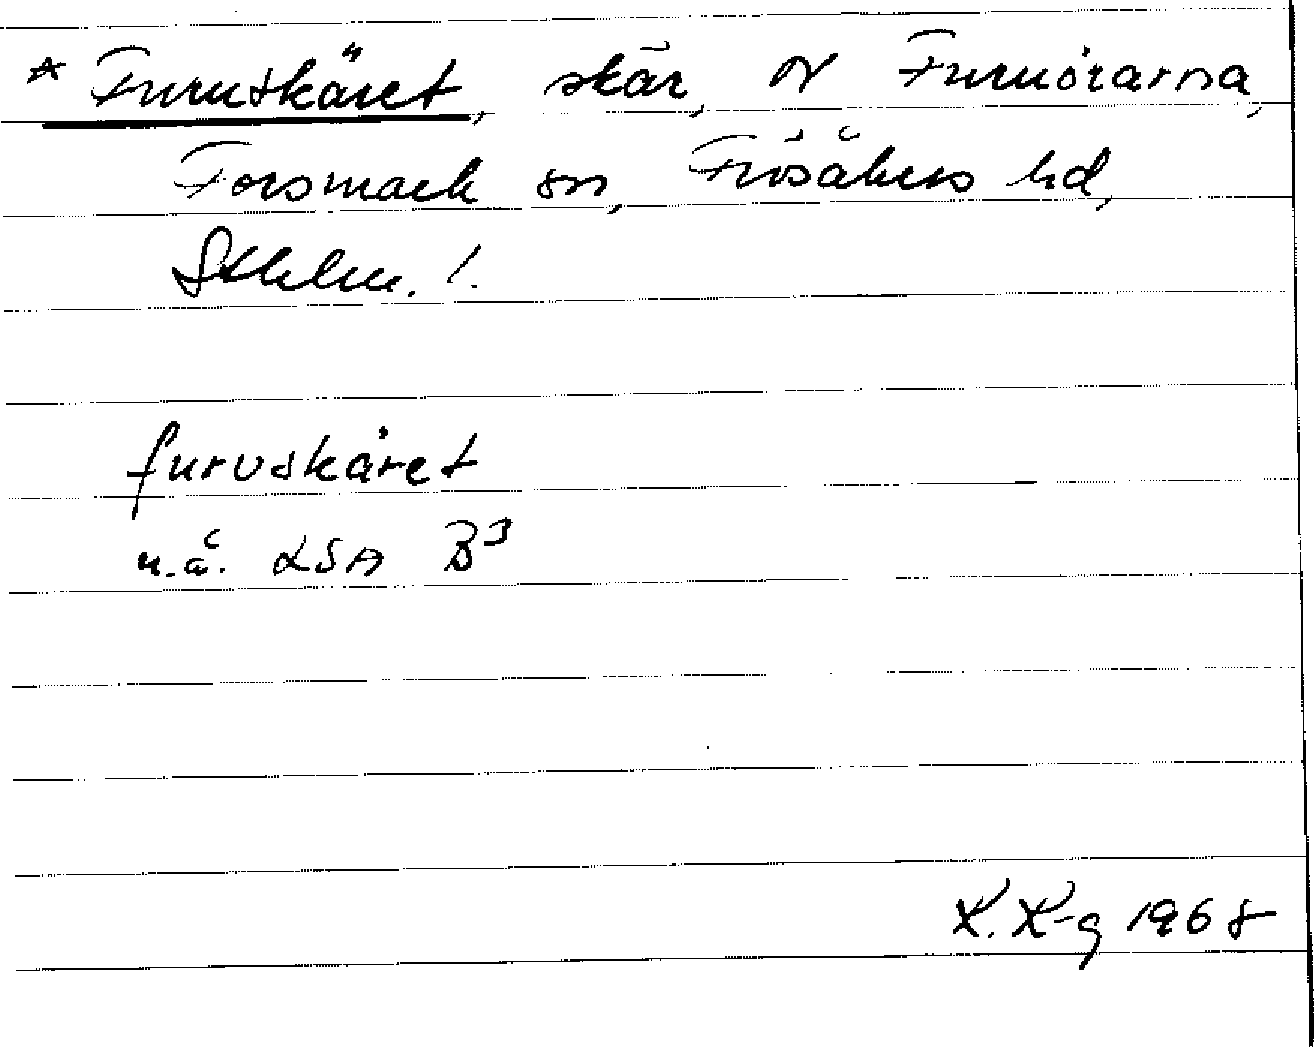 * Furuskäret, skär, N Furuörarna,
Forsmark sn, Frösåkers hd,
Sthlm. l.
furuskäret
u.å. LSA B3
K. K-g 1968